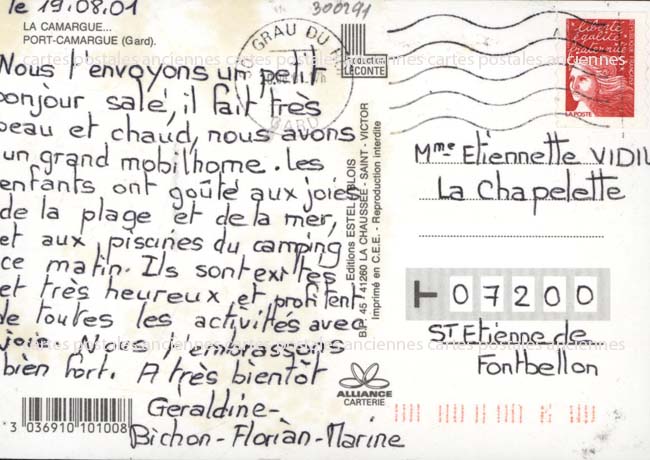 le 19.08.01
300291
LA CAMARGUE...
PORT-CAMARGUE (Gard).
30 GRAU DU
GARD
production
LECONTE
liberté
égalité
fraternité
LA POSTE
Nous t'envoyons un petit
bonjour salé, il fait très
beau et chaud, nous avons
un grand mobilhome. Les
enfants ont goûté aux joies
de la plage et de la mer,
et aux piscines du camping
ce matin. Ils sont
et très heureux et profitent
de toutes les activités avec
joie. Nous t'embrassons
bien fort. A très bientôt
Geraldine-
Bichon-Florian-Marine
Editions ESTEL-BLOIS
B.P. 45 - 41260 LA CHAUSSÉE - SAINT - VICTOR
Imprimé en C.E.E. - Reproduction interdite
Mme Etiennette VIDIL
La Chapelette
07200
ST Etienne de
Fontbellon
ALLIANCE
CARTERIE
3 036910 101008
cartes postales anciennes cartes postales anciennes cartes postales anciennes
cartes postales anciennes cartes postales anciennes cartes postales anciennes